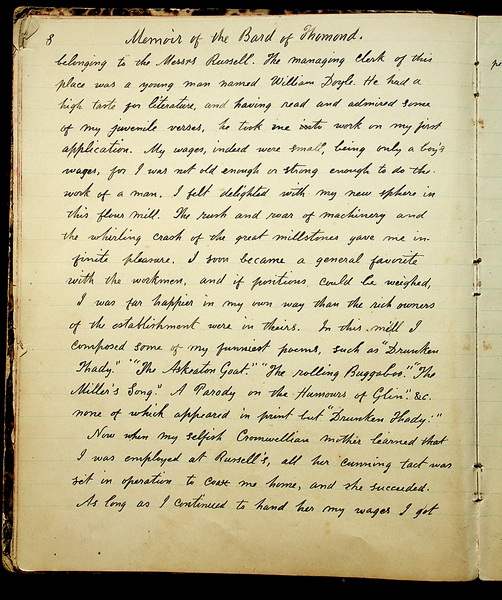 8 Memoir of the Bard of Thomond.
belonging to the Messrs Russell. The managing clerk of this
place was a young man named William Doyle. He had a
high taste for literature, and having read and admired some
of my juvenile verses, he took me into work on my first
application. My wages, indeed were small, being only a boy's
wages, for I was not old enough or strong enough to do the
work of a man. I felt delighted with my new sphere in
this flour mill. The rush and roar of machinery and
the whirling crash of the great millstones gave me in-
finite pleasure. I soon became a general favorite
with the workmen, and if positions could be weighed,
I was far happier in my own way than the rich owners
of the establishment were in theirs. In this mill I
composed some of my funniest poems, such as "Drunken
Thady." "The Askeaton Goat." "The rolling Buggaboo." "The
Miller's Song." A Parody on the Humours of Glin". &c.
none of which appeared in print but "Drunken Thady:"
Now when my selfish Cromwellian mother learned that
I was employed at Russell's, all her cunning tact was
set in operation to coax me home, and she succeeded.
As long as I continued to hand her my wages I got